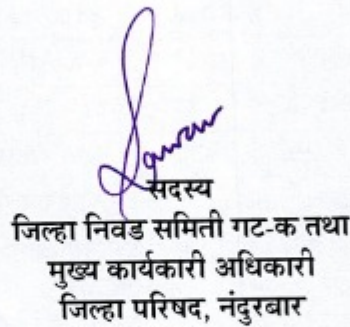 सदस्य
जिल्हा निवड समिती गट-क तथा
मुख्य कार्यकारी अधिकारी
जिल्हा परिषद, नंदुरबार